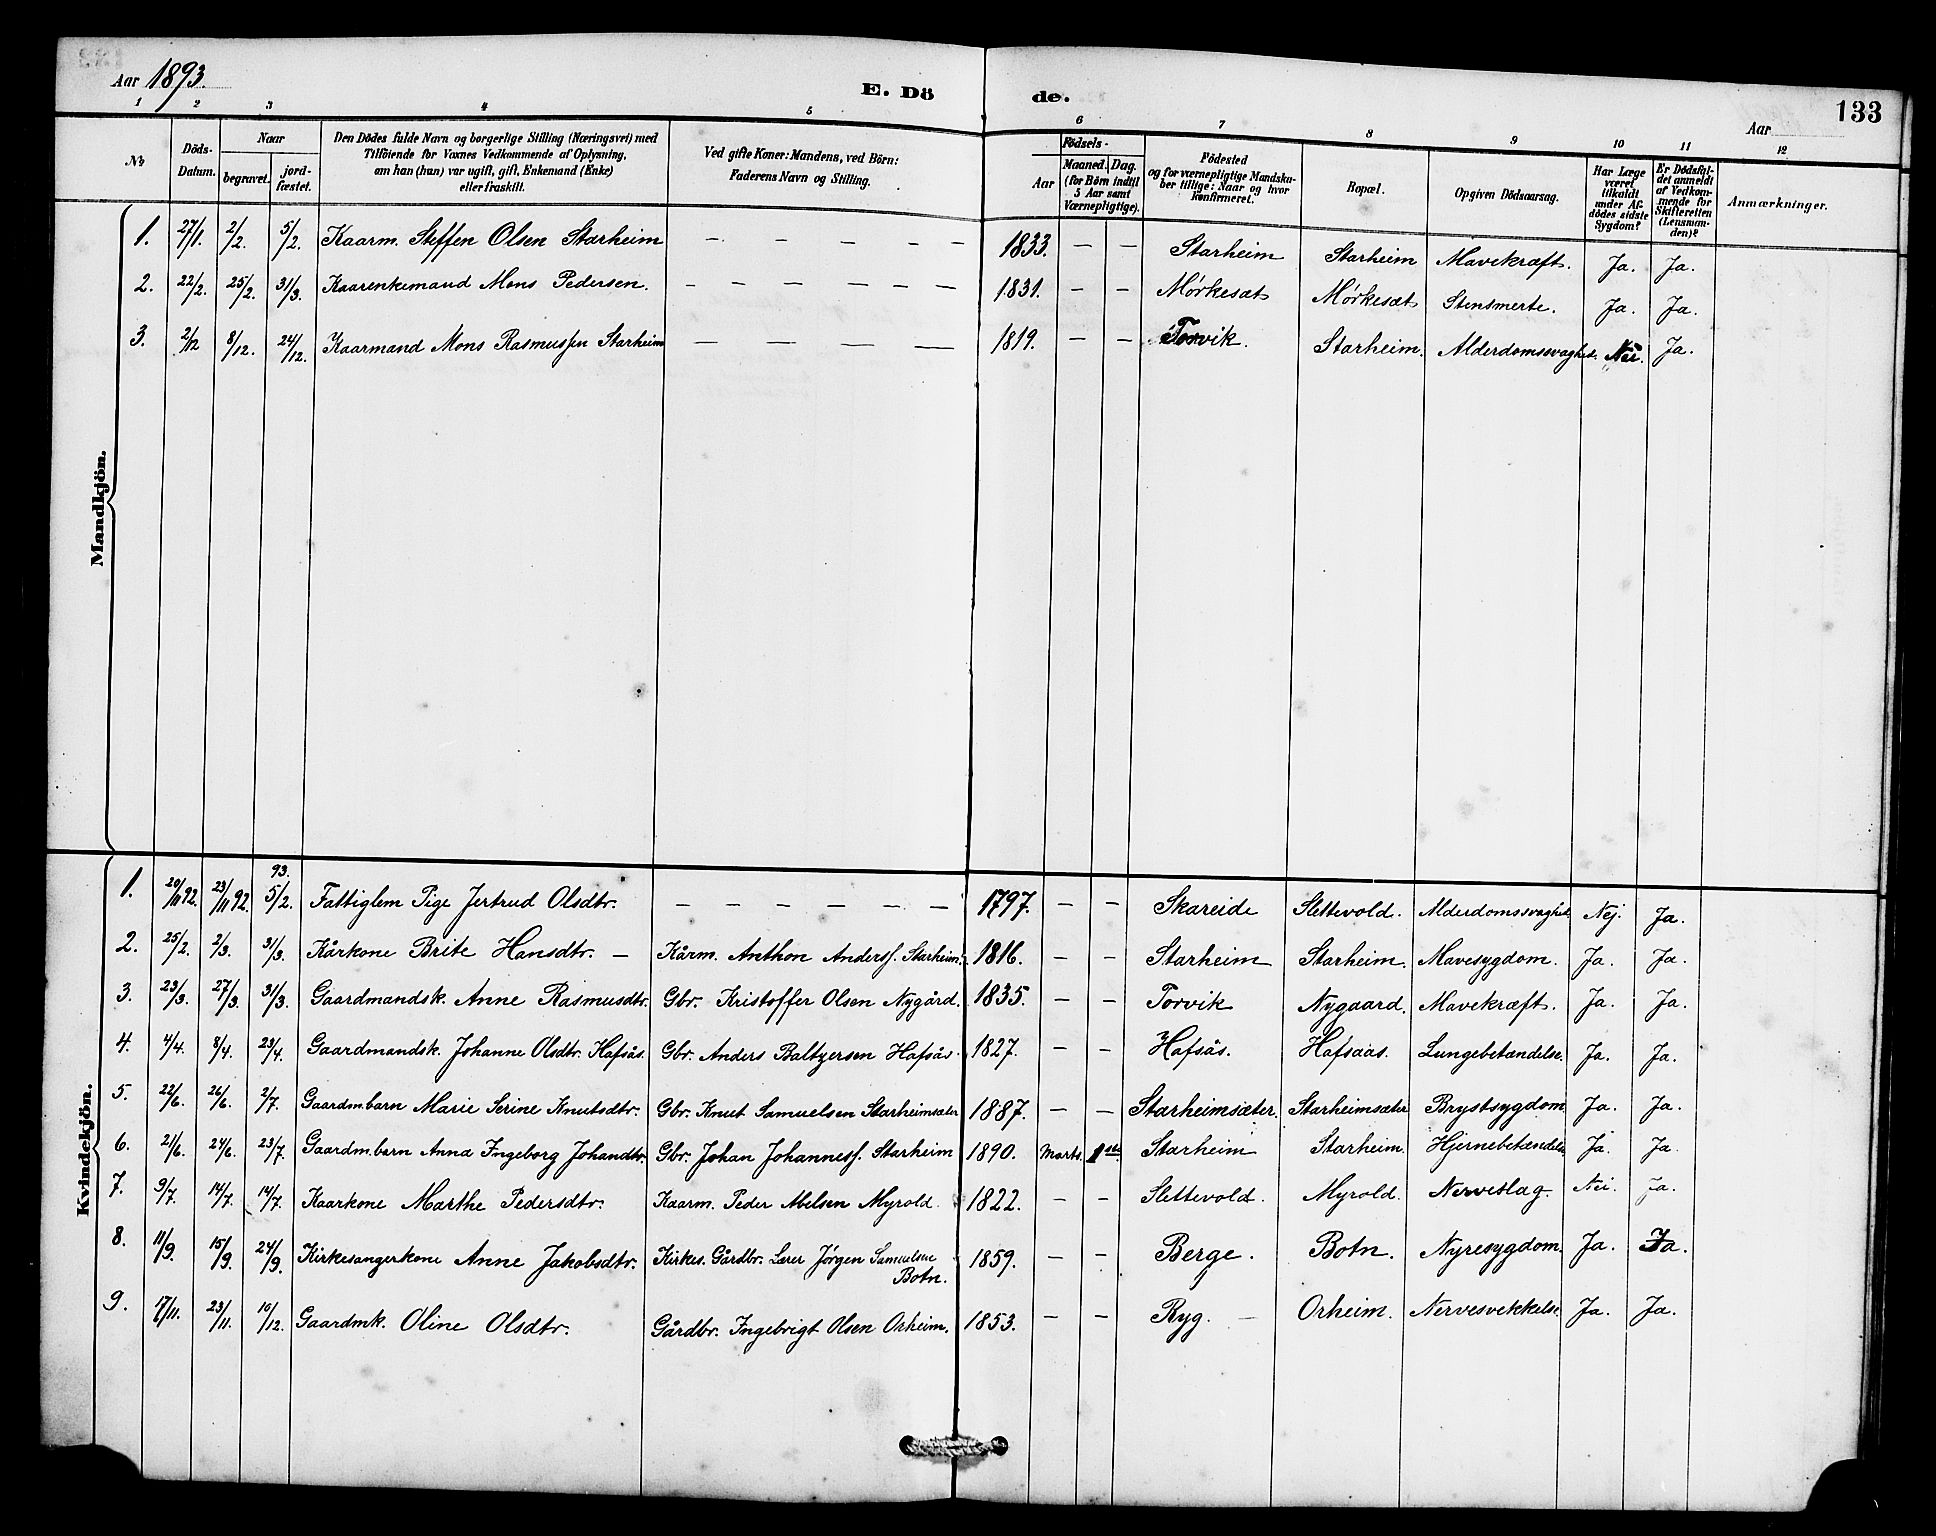 Aar 1893.
E. Dö de.
Aar
133
1 2 3 4 5 6 7 8 9 10 11 12
No
Döds-Datum.
Naar
begravet.
jord-fæstet.
Den Dödes fulde Navn og borgerlige Stilling (Næringsvei) med
Tilföiende for Voxnes Vedkommende af Oplysning,
om han (hun) var ugift, gift, Enkemand (Enke)
eller fraskilt.
Ved gifte Koner: Mandens, ved Börn:
Faderens Navn og Stilling.
Födsels-
Aar
Maaned. Dag.
(for Börn indtil
5 Aar samt
Værnepligtige).
Födested
og for værnepligtige Mandska-
ber tillige: Naar og hvor
konfirmeret.
Bopæl.
Opgiven Dödsaarsag.
Har Læge
været
tilkaldt
under Af-
dödes sidste
Sygdom?
Er Dödsfal-
det anmeldt
af Vedkom-
mende for
Skifteretten
(Lensman-
den)?
Anmærkninger.
Mandkjön.
1. 27/1. 2/2. 5/2. Kaarm. Steffen Olsen Starheim — — — — — 1833. — — Starheim Starheim Mavekræft. Ja. Ja.
2. 22/2. 25/2. 31/3. Kaarenkemand Mons Pedersen. — — — — — — 1831. — — Mørkesæt Mørkesæt Stensmerte. Ja. Ja.
3. 2/12 8/12. 24/12. Kaarmand Mons Rasmussen Starheim — — — — 1819. — — Torvik. Starheim. Alderdomssvaghet. Nei. Ja.
Kvindekjön.
1. 20/11 92. 23/11 92. 93. 5/2. Fattiglem Pige Jertrud Olsdtr. — — — — — — 1797. — — Skareide Slettevold. Alderdomssvaghet Nej. Ja.
2. 25/2. 2/3. 31/3. Kårkone Brite Hansdtr. — Kårm. Anthon Anderss. Starheim. 1816. — — Starheim Starheim. Mavesygdom. Ja. Ja.
3. 23/3. 27/3. 31/3. Gaardmandsk. Anne Rasmusdtr. Gbr. Kristoffer Olsen Nygård. 1835. — — Torvik Nygaard. Mavekræft. Ja. Ja.
4. 4/4. 8/4. 23/4. Gaardmandsk. Johanne Olsdtr. Hafsås. Gbr. Anders Baltzersen Hafsås. 1827. — — Hafsås. Hafsaas. Lungebetændelse. Ja. Ja.
5. 22/6. 26/6. 2/7. Gaardm.barn Marie Serine Knutsdtr. Gbr. Knut Samuelsen Starheimsæter 1887. — — Starheimsæter. Starheimsæter Brystsygdom Ja. Ja.
6. 21/6. 24/6. 23/7. Gaardm.barn Anna Ingeborg Johandtr. Gbr. Johan Johanness. Starheim 1890. Marts. 1ste. Starheim Starheim. Hjernebetændelse Ja. Ja.
7. 9/7. 14/7. 14/7. Kaarkone Marthe Pedersdtr. Kaarm. Peder Abelsen Myrold. 1822. — — Slettevold. Myrold. Nerveslag. Nei. Ja.
8. 11/9. 15/9. 24/9. Kirkesangerkone Anne Jakobsdtr. Kirkes. Gårdbr. Lærer Jørgen Samuelsen Botn. 1859. — — Berge. Botn. Nyresygdom. Ja. Ja.
9. 17/11. 23/11. 10/12. Gaardmk. Oline Olsdtr. Gårdbr. Ingebrigt Olsen Orheim. 1853. — — Ryg. — Orheim. Nervesvekkelse. Ja. Ja.